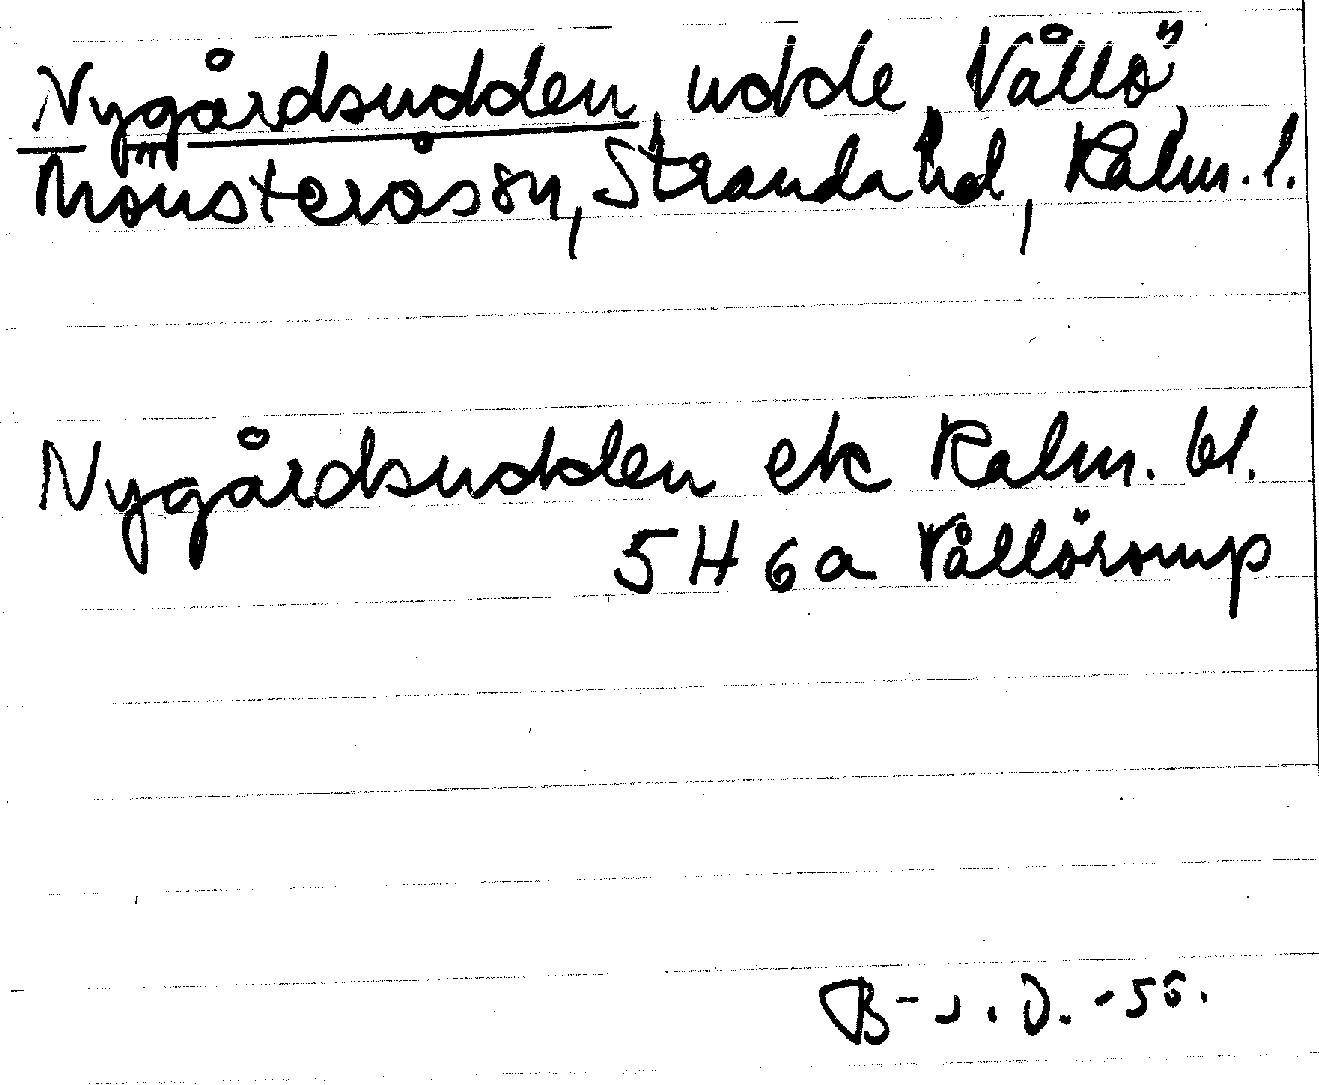 Nygårdsudden, udde, Vållö,
Mönsterås sn, Stranda hd, Kalm. l.
Nygårdsudden ek Kalm. bl.
5 H 6a Vållöromp
B-J. D. -56.